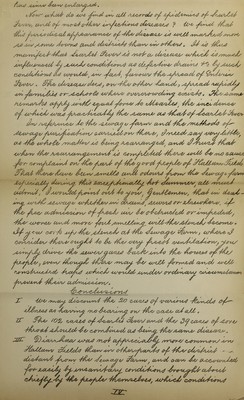 has since been enlarged.
Now what do we find in all records of epidemics of Scarlet
Fever, and of most other infectious diseases? We find that
this periodical appearance of the disease is well marked more
so in some towns and districts than in others. It is thus
manifest that Scarlet Fever is not a disease which is much
influenced by such conditions as defective drains or by such
conditions as would, in fact, favour the spread of Enteric
Fever. The disease also, on the other hand, spreads rapidly
in families or schools where overcrowding exists. The same
remarks apply with equal force to Measles, the incidence
of which was practically the same as that of Scarlet Fever.
In reference to the Sewage farm and the methods of
sewage purification carried on there, I need say very little,
as the whole matter is being rearranged, and I trust that
when the rearrangement is completed there will be no cause
for complaint on the part of the good people of Hallam Fields.
That there have been smells and odours from the Sewage farm
especially during this exceptionally hot Summer, we must
admit. I would point out to you, Gentlemen, that in deal-
ing with sewage whether in drains, sewers or elsewhere, if
the free admission of fresh air be obstructed or impeded,
the worse and more foul smelling will the stench become.
If you cork up the stench at the Sewage Farm, where I
consider there ought to be the very freest ventilation, you
simply drive the sewer gases back into the houses of the
people, even though these may be well formed and well
constructed traps which would under ordinary circumstances
prevent their admission.
Conclusions
I We may discount the 20 cases of various kinds of
illness as having no bearing on the case at all.
II The 102 cases of Scarlet Fever and the 39 cases of sore
throat should be combined as being the same disease.
III Diarrhoea was not appreciably more common in
Hallam Fields than in other parts of the district
distant from the Sewage Farm, and can be accounted
for easily by insanitary conditions brought about
chiefly by the people themselves, which conditions
IV